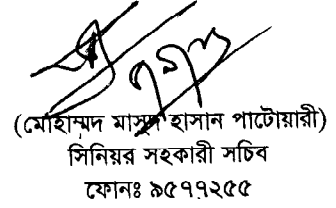 (মোহাম্মদ মাসুদ হাসান পাটোয়ারী)
সিনিয়র সহকারী সচিব
ফোনঃ ৯৫৭৭২৫৫